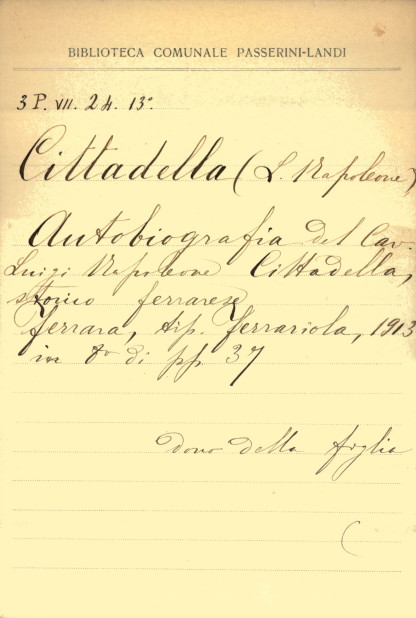 BIBLIOTECA COMUNALE PASSERINI-LANDI
3 P. VII. 24. 13°
Cittadella (L. Napoleone)
Autobiografia del Cav.
Luigi Napoleone Cittadella,
storico ferrarese
ferrara, tip. ferrariola, 1913
in 8° di pp. 37
dono della figlia